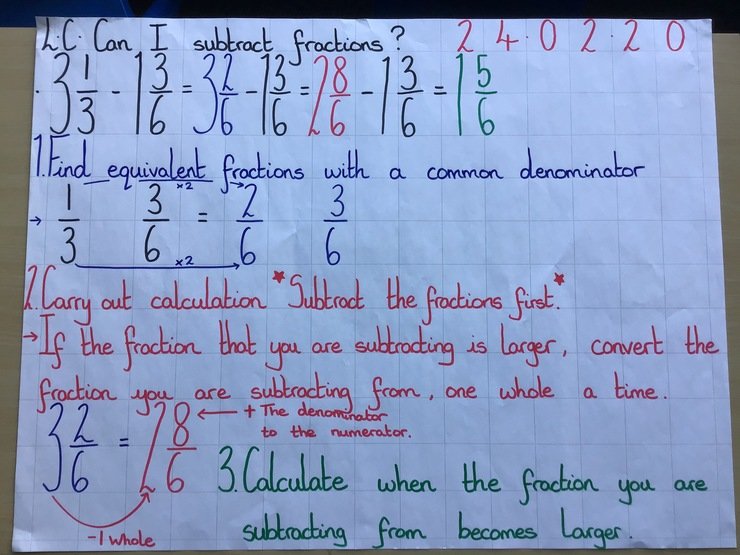 L.C. Can I subtract fractions? 24.02.20
. 3 1/3 - 1 3/6 = 3 2/6 - 1 3/6 = 2 8/6 - 1 3/6 = 1 5/6
1. Find equivalent fractions with a common denominator
x2
→ 1/3 3/6 = 2/6 3/6
x2
2. Carry out calculation *Subtract the fractions first.*
→ If the fraction that you are subtracting is larger, convert the
fraction you are subtracting from, one whole a time.
3 2/6 = 2 8/6 ← + The denominator
to the numerator.
-1 whole
3. Calculate when the fraction you are
subtracting from becomes larger.